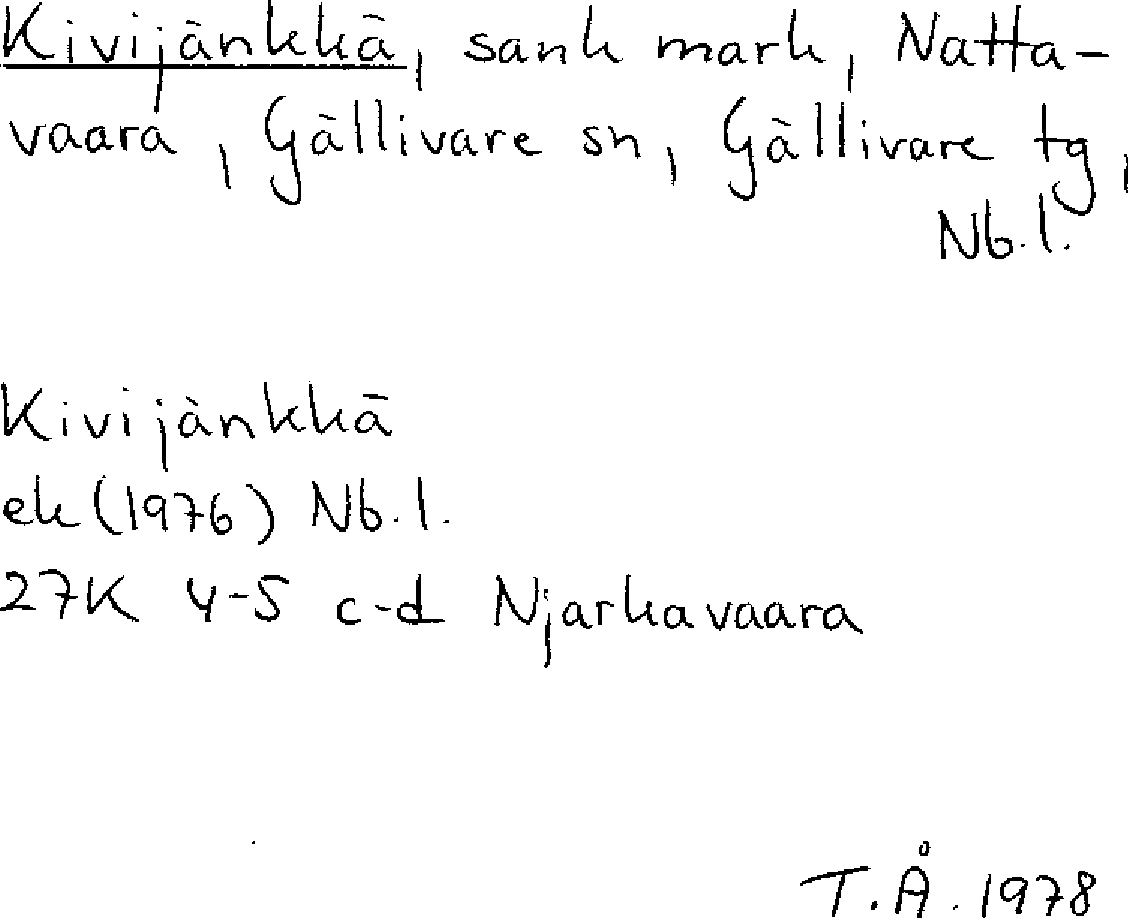 Kivijänkkä, sank mark, Natta-
vaara, Gällivare sn, Gällivare tg,
Nb.l.
Kivijänkkä
ek (1976) Nb.l.
27K 4-5 c-d Njarkavaara
T.Å. 1978